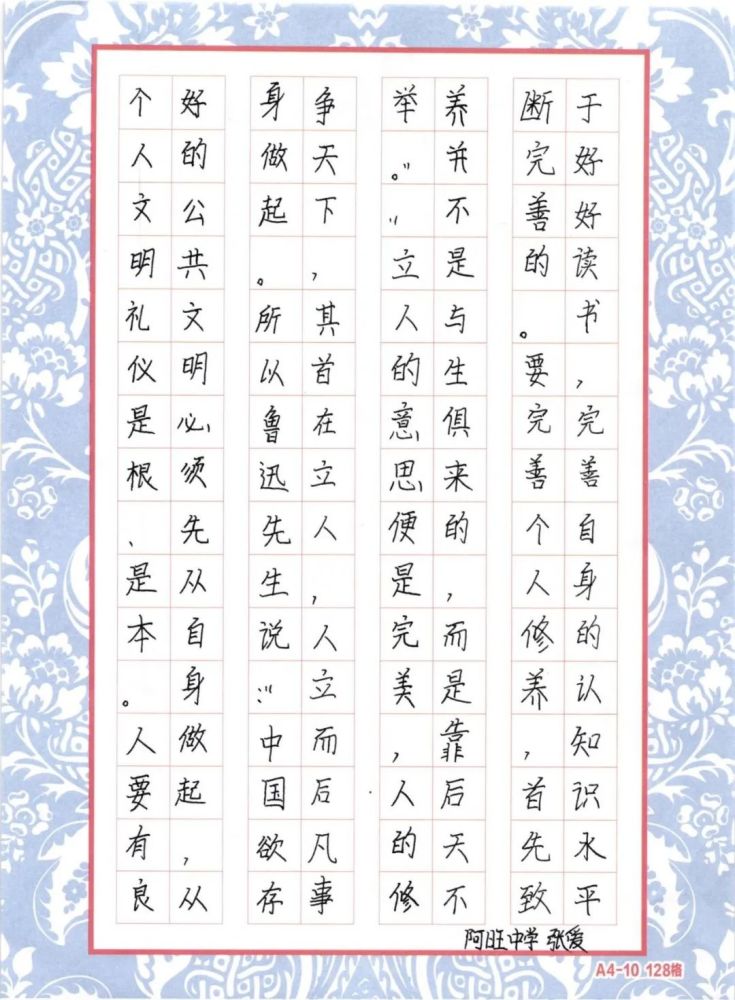 个人文明礼仪是根、是本。人要有良
好的公共文明必须先从自身做起，从
身做起。所以鲁迅先生说：“中国欲存
争天下，其首在立人，人立而后凡事
举。”“立人的意思便是完美，人的修
养并不是与生俱来的，而是靠后天不
断完善的。要完善个人修养，首先致
于好好读书，完善自身的认知识水平
阿旺中学 张爱
A4-10 128格